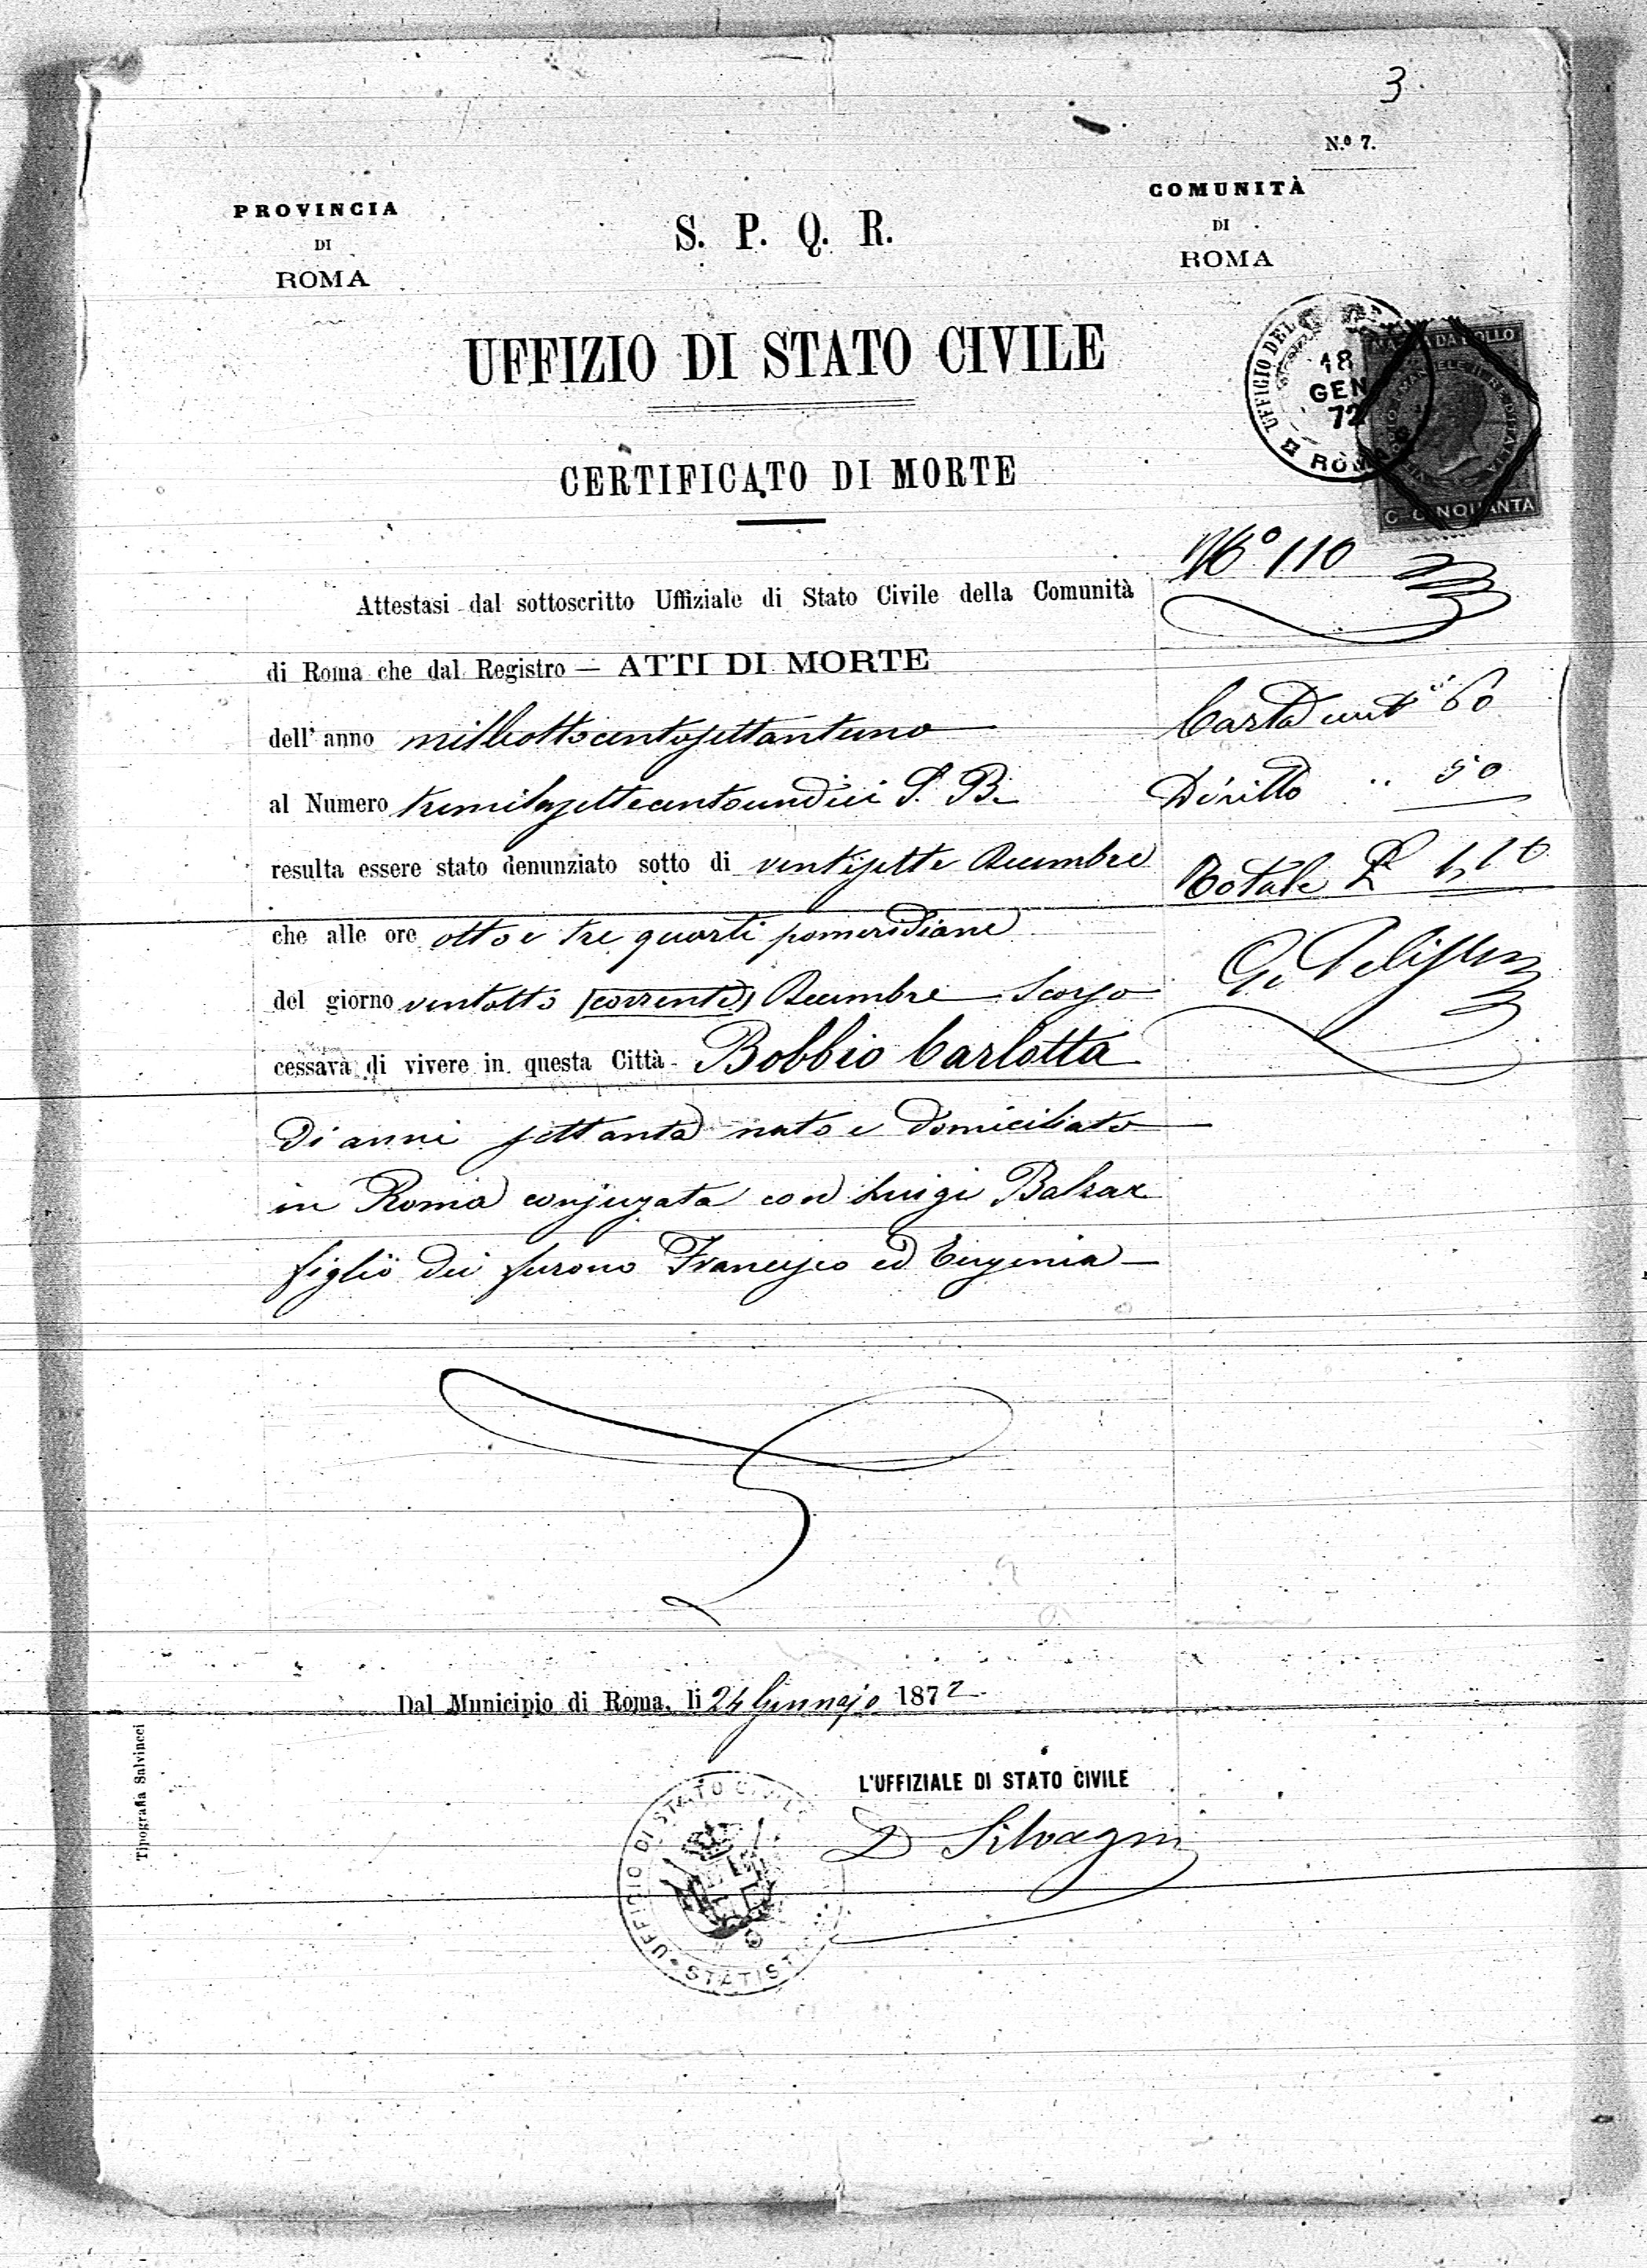 3.
N.º 7.
PROVINCIA
DI
ROMA
S. P. Q. R.
COMUNITÀ
DI
ROMA
UFFIZIO DI STATO CIVILE
CERTIFICATO DI MORTE
UFFICIO DEL
18
GEN
72
ROMA
MARCA DA BOLLO
C. CINQUANTA
Nº 110
Attestasi dal sottoscritto Uffiziale di Stato Civile della Comunità
di Roma che dal Registro — ATTI DI MORTE
dell' anno milleottocentosettantuno
al Numero tremilasettecentoundici S. B.
resulta essere stato denunziato sotto di ventisette Decembre
che alle ore otto e tre quarti pomeridiane
del giorno ventotto (corrente) Decembre Scorso
cessava di vivere in questa Città Bobbio Carlotta
di anni settanta nato e domiciliato
in Roma conjugata con Luigi
figlio dei furono Francesco ed Eugenia
Carta cent 60
Diritto " 50
Totale L 1,10
Dal Municipio di Roma, li 24 Gennajo 1872
L'UFFIZIALE DI STATO CIVILE
D Silvagni
UFFICIO DI STATO CIVILE
Tipografia Salvincci